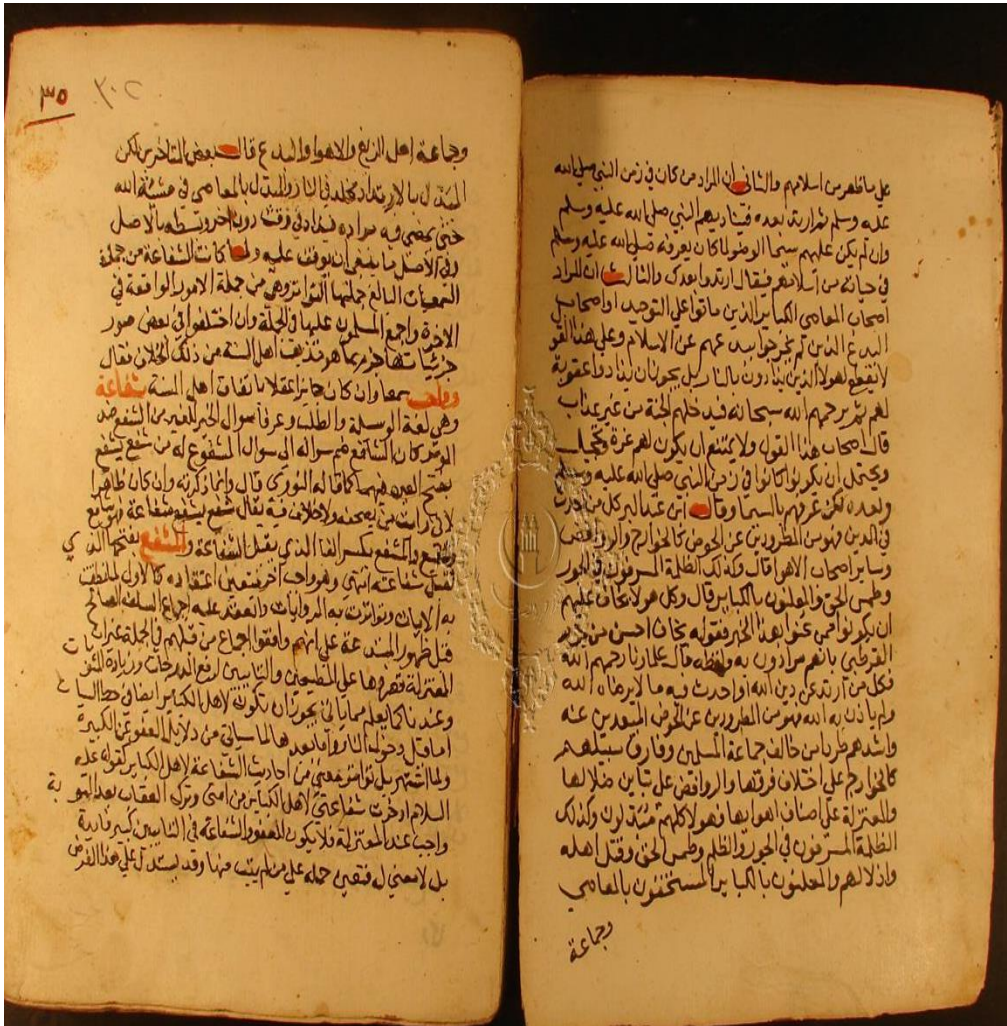 على ما ظهر من اسلامهم والثاني ان المراد من كان في زمن النبي صلى الله
عليه وسلم ثم ارتد بعده فيناديهم النبي صلى الله عليه وسلم
وان لم يكن عليهم سيما الوضو لما كان يعرفه صلى الله عليه وسلم
في حياته من اسلامهم فيقال ارتدوا بعدك والثالث ان المراد
اصحاب المعاصي الكباير الذين ماتوا على التوحيد او اصحاب
البدع الذين لم يخرجوا ببدعهم عن الاسلام وعلى هذا القو
لا نقطع لهولا الذين يذادون بالنار بل يجوز ان يذادوا عقوبة
لهم ثم يرحمهم الله سبحانه فيدخلهم الجنة من غير عذاب
قال اصحاب هذا القول ولا يمتنع ان يكون لهم غرة وتحجيل
ويحتمل ان يكونوا كانوا في زمن النبي صلى الله عليه وسلم
وبعده لكن عرفهم بالسيما وقال ابن عبد البر كل من احدث
في الدين فهو من المطرودين عن الحوض كالخوارج والروافض
وساير اصحاب الاهوا قال وكذلك الظلمة المسرفون في الجور
وطمس الحق والمعلنون بالكباير قال وكل هولا يخاف عليهم
ان يكونوا ممن عنوا بهذا الخبر فقوله يخاف احسن من جزم
القرطبي بانهم مرادون به ولفظه قال علمانا رحمهم الله
فكل من ارتد عن دين الله او احدث فيه ما لا يرضاه الله
ولم ياذن به الله فهو من المطرودين عن الحوض المبعدين عنه
واشدهم طردا من خالف جماعة المسلمين وفارق سبيلهم
كالخوارج على اختلاف فرقها والروافض على تباين ضلالها
والمعتزلة على اصناف اهوايها فهولا كلهم مبدلون وكذلك
الظلمة المسرفون في الجور والظلم وطمس الحق وقتل اهله
واذلالهم والمعلنون بالكباير المستخفون بالمعاصي
وجماعة
٣٠٢
٣٥
وجماعة اهل الزيغ والاهوا والبدع قال بعض المتاخرين لكن
المبدل بالارتداد مخلد في النار والمبدل بالمعاصي في مشيئة الله
حتى يمضي فيه مراده فيذاد في وقت دون اخر وبسطه بالاصل
وفي الاصل ما ينبغي ان يوقف عليه ولما كانت الشفاعة من جملة
السمعيات البالغ جملتها التواتر وهي من جملة الامور الواقعة في
الاخرة واجمع المسلمون عليها في الجملة وان اختلفوا في بعض صور
جزئياتها جزم بما هو مذهب اهل السنة من ذلك الخلاف فقال
وواجب سمعا وان كان جائزا عقلا باتفاق اهل السنة شفاعة
وهي لغة الوسيلة والطلب وعرفا سوال الخير للغير من الشفع ضد
الوتر كان الشافع ضم سواله الى سوال المشفوع له من شفع يشفع
بفتح العين فيهما كما قاله النووي قال وانما ذكرته وان كان ظاهرا
لاني رايت من يصحفه ولا خلاف فيه يقال شفع يشفع شفاعة فهو شافع
وشفيع والمشفع بكسر الفا الذي يقبل الشفاعة والمشفع بفتحها الذي
تقبل شفاعته انتهى وهو واجب اخر فتعين اعتقاده كالاول لما نطقت
به الايات وتواترت به الروايات وانعقد عليه اجماع السلف الصالح
قبل ظهور المبتدعة على انهم وافقوا اجماع من قبلهم في الجملة غير ان
المعتزلة قصروها على المطيعين والتايبين لرفع الدرجات وزيادة الثو
وعندنا كما يعلم مما ياتي يجوز ان تكون لاهل الكباير ايضا في حط السيات
اما قبل دخول النار واما بعدها لما سياتي من دلايل العفو عن الكبيرة
ولما اشتهر بل تواتر معنى من احاديث الشفاعة لاهل الكباير كقوله عليه
السلام ادخرت شفاعتي لاهل الكباير من امتي وترك العقاب بعد التوبة
واجب عند المعتزلة فلا يكون للعفو والشفاعة في التايبين كبير فايدة
بل لا معنى له فتعين حمله على من لم يتب منها وقد يستدل على هذا الغرض